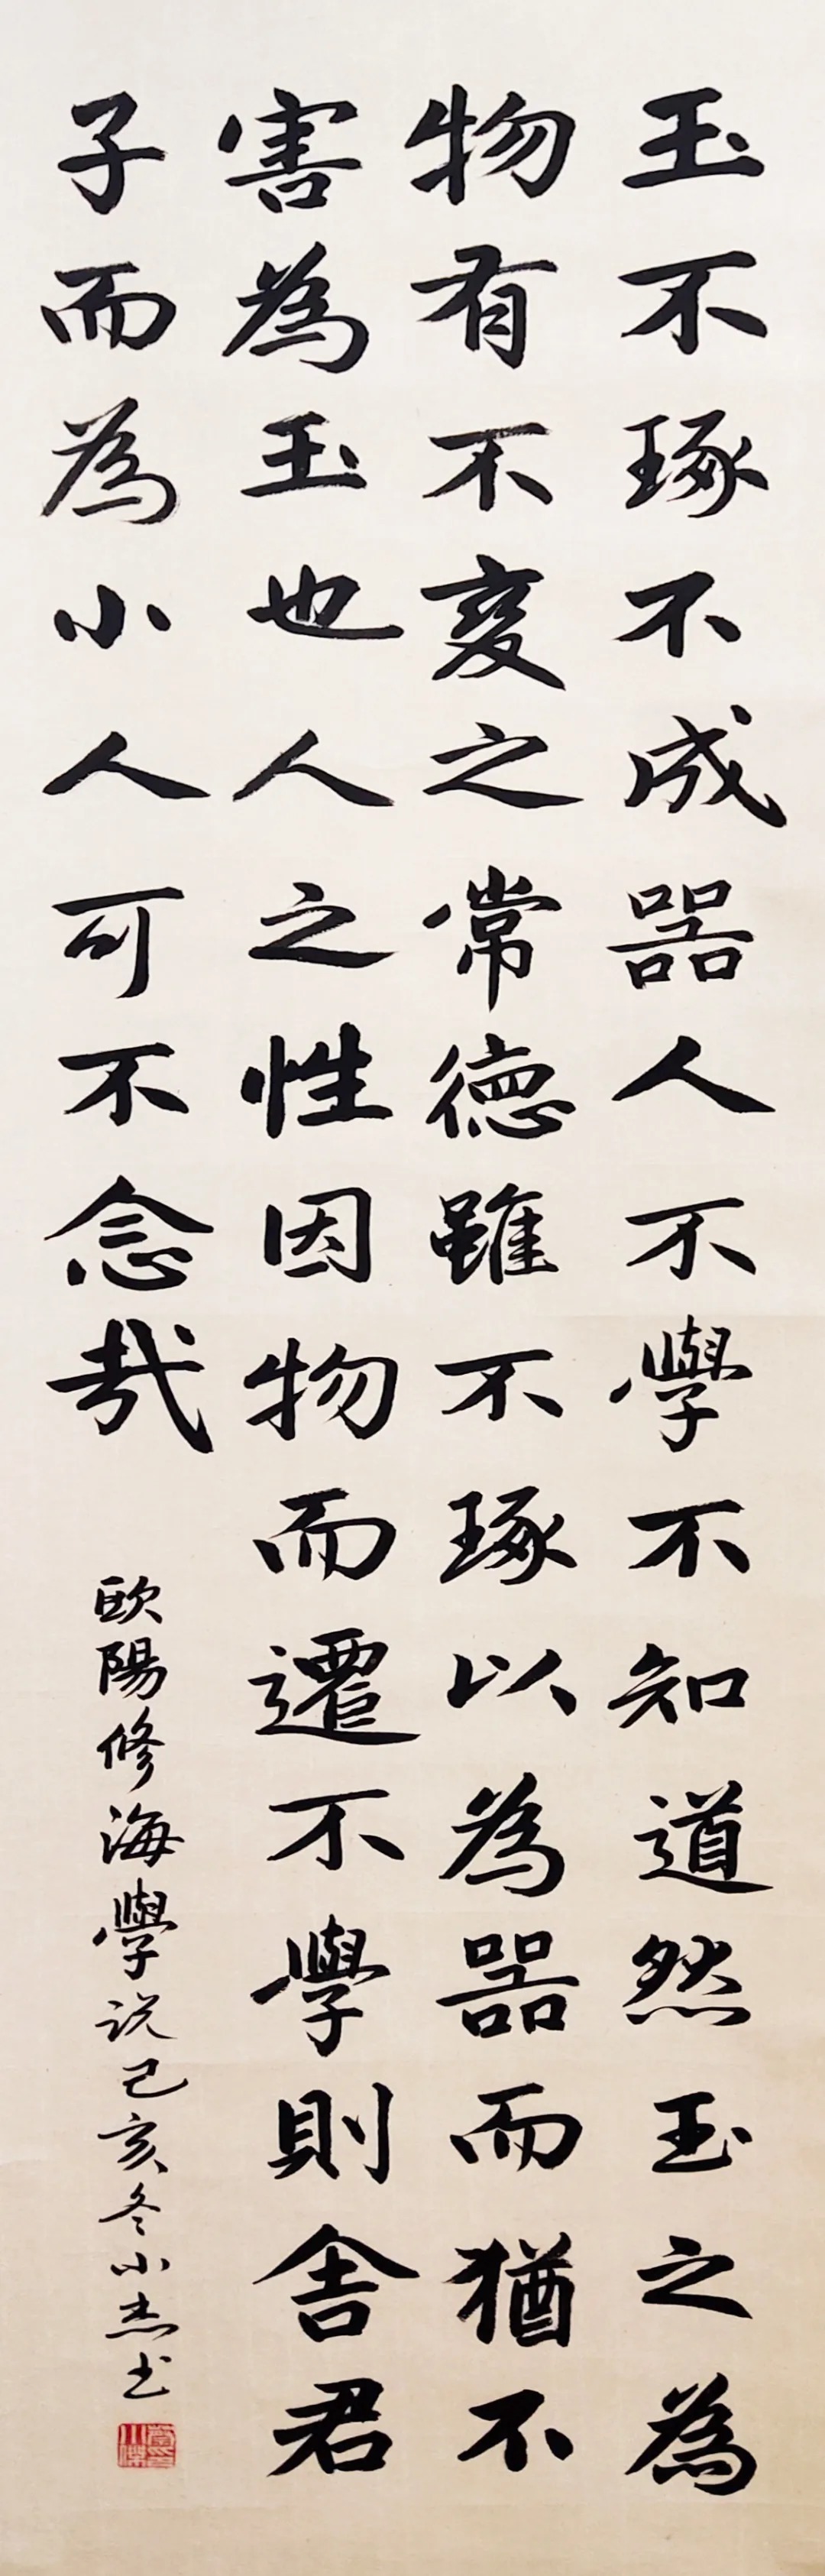 玉不琢不成器人不學不知道然玉之為
物有不變之常德雖不琢以為器而猶不
害為玉也人之性因物而遷不學則舍君
子而為小人可不念哉
歐陽修海學说己亥冬小杰书